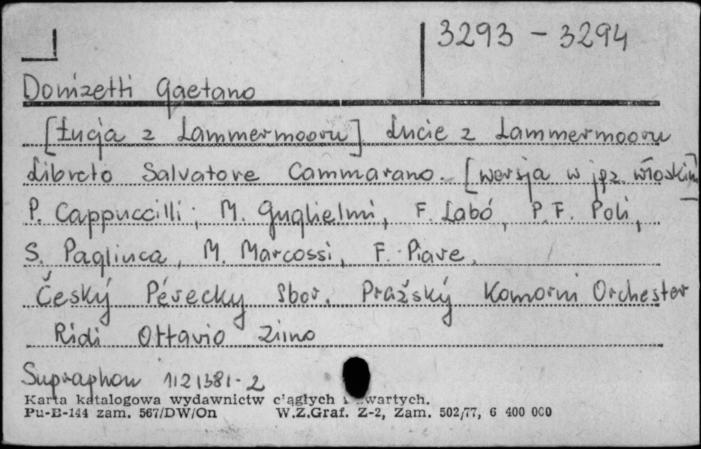 3293 - 3294
Donizetti Gaetano
[Łucja z Lammermooru] Lucie z Lammermooru
Libreto Salvatore Cammarano. [wersja w jęz. włoskim]
P. Cappuccilli, M. Guglielmi, F. Labó, P.F. Poli,
S. Pagliuca, M. Marcossi, F. Piave.
Český Pévecky Sbor. Pražský Komorni Orchester
Ridi Ottavio Ziino
Supraphon 1121381-2
Karta katalogowa wydawnictw ciągłych i zwartych.
Pu-B-144 zam. 567/DW/On W.Z.Graf. Z-2, Zam. 502/77, 6 400 000